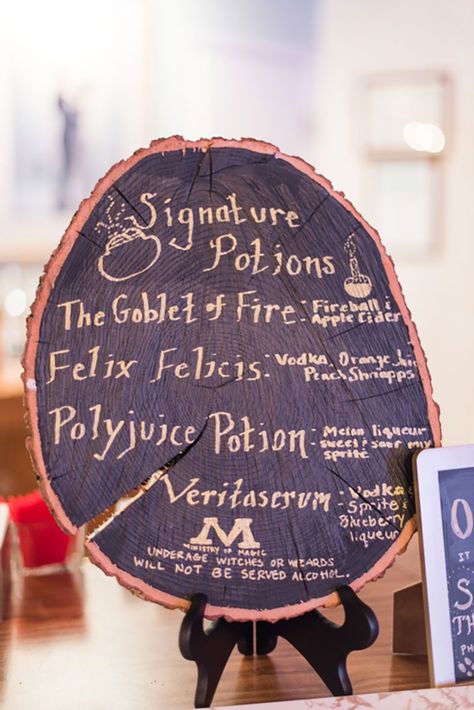 Signature
Potions
The Goblet of Fire: Fireball &
Apple Cider
Felix Felicis: Vodka, Orange Juice
Peach Shnapps
Polyjuice Potion: Melon liqueur
sweet & sour mix
sprite
Veritaserum: Vodka &
Sprite &
Blueberry
liqueur
M
MINISTRY OF MAGIC
UNDERAGE WITCHES OR WIZARDS
WILL NOT BE SERVED ALCOHOL.